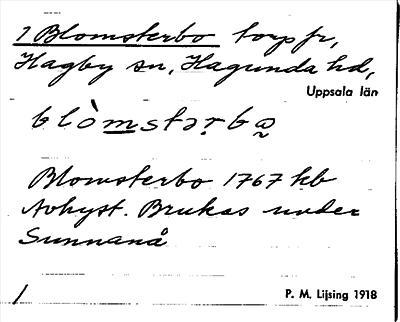 1 Blomsterbo torp fr,
Hagby sn, Hagunda hd,
Uppsala län
blòmstərbo̰
Blomsterbo 1767 kb
Avhyst. Brukas under
Sunnanå
/
P. M. Lijsing 1918